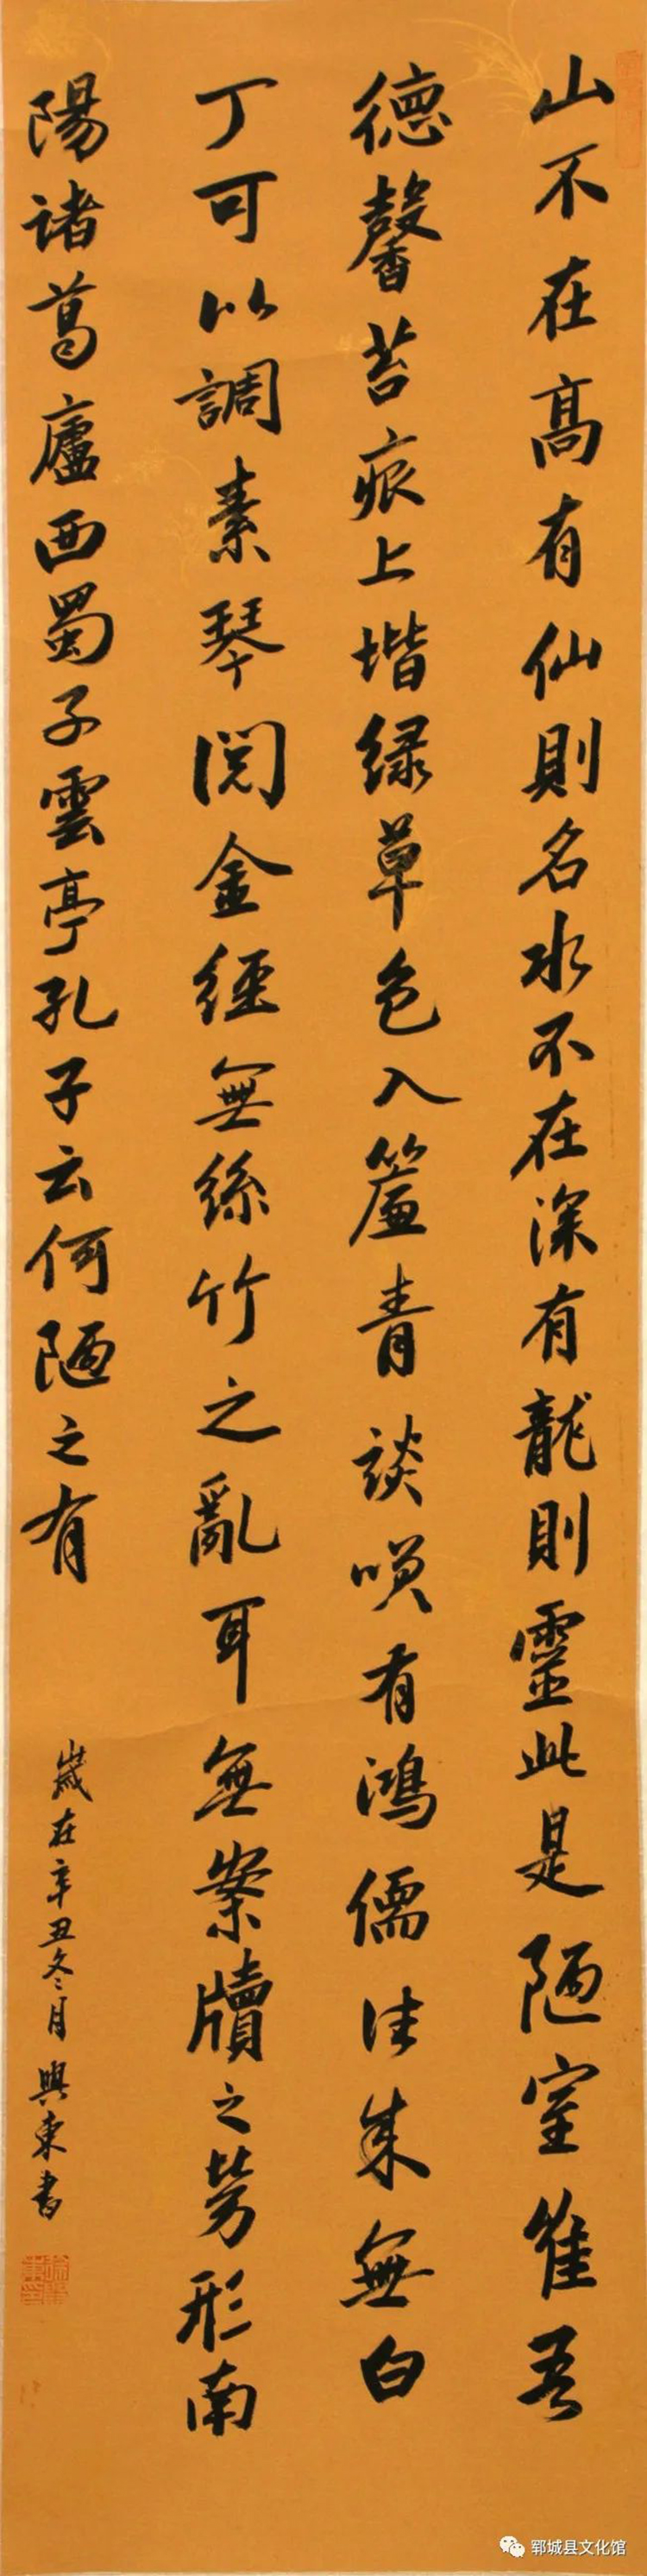 山不在高有仙則名水不在深有龍則靈此是陋室惟吾
德馨苔痕上堦绿草色入簾青談咲有鴻儒往来無白
丁可以調素琴閱金經無絲竹之亂耳無案牘之勞形南
陽诸葛廬西蜀子雲亭孔子云何陋之有
歲在辛丑冬月興東書
郓城县文化馆